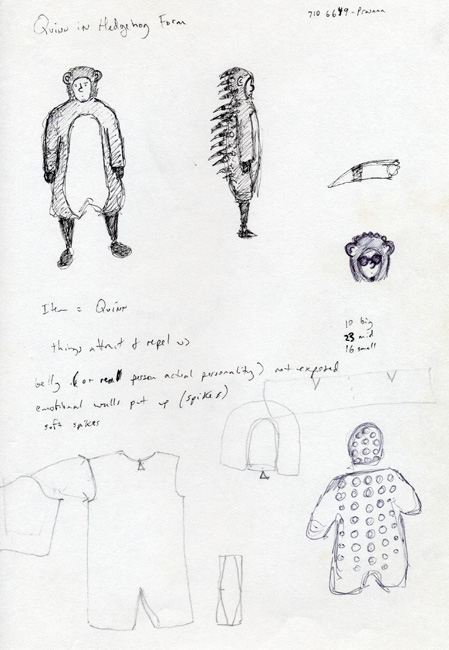 Quinn in Hedgehog Form
710 6649 -
Item = Quinn
things attract & repel us
10 big
23 mid
16 small
belly (or real person actual personality) not exposed
emotional walls put up (spikes)
soft spikes